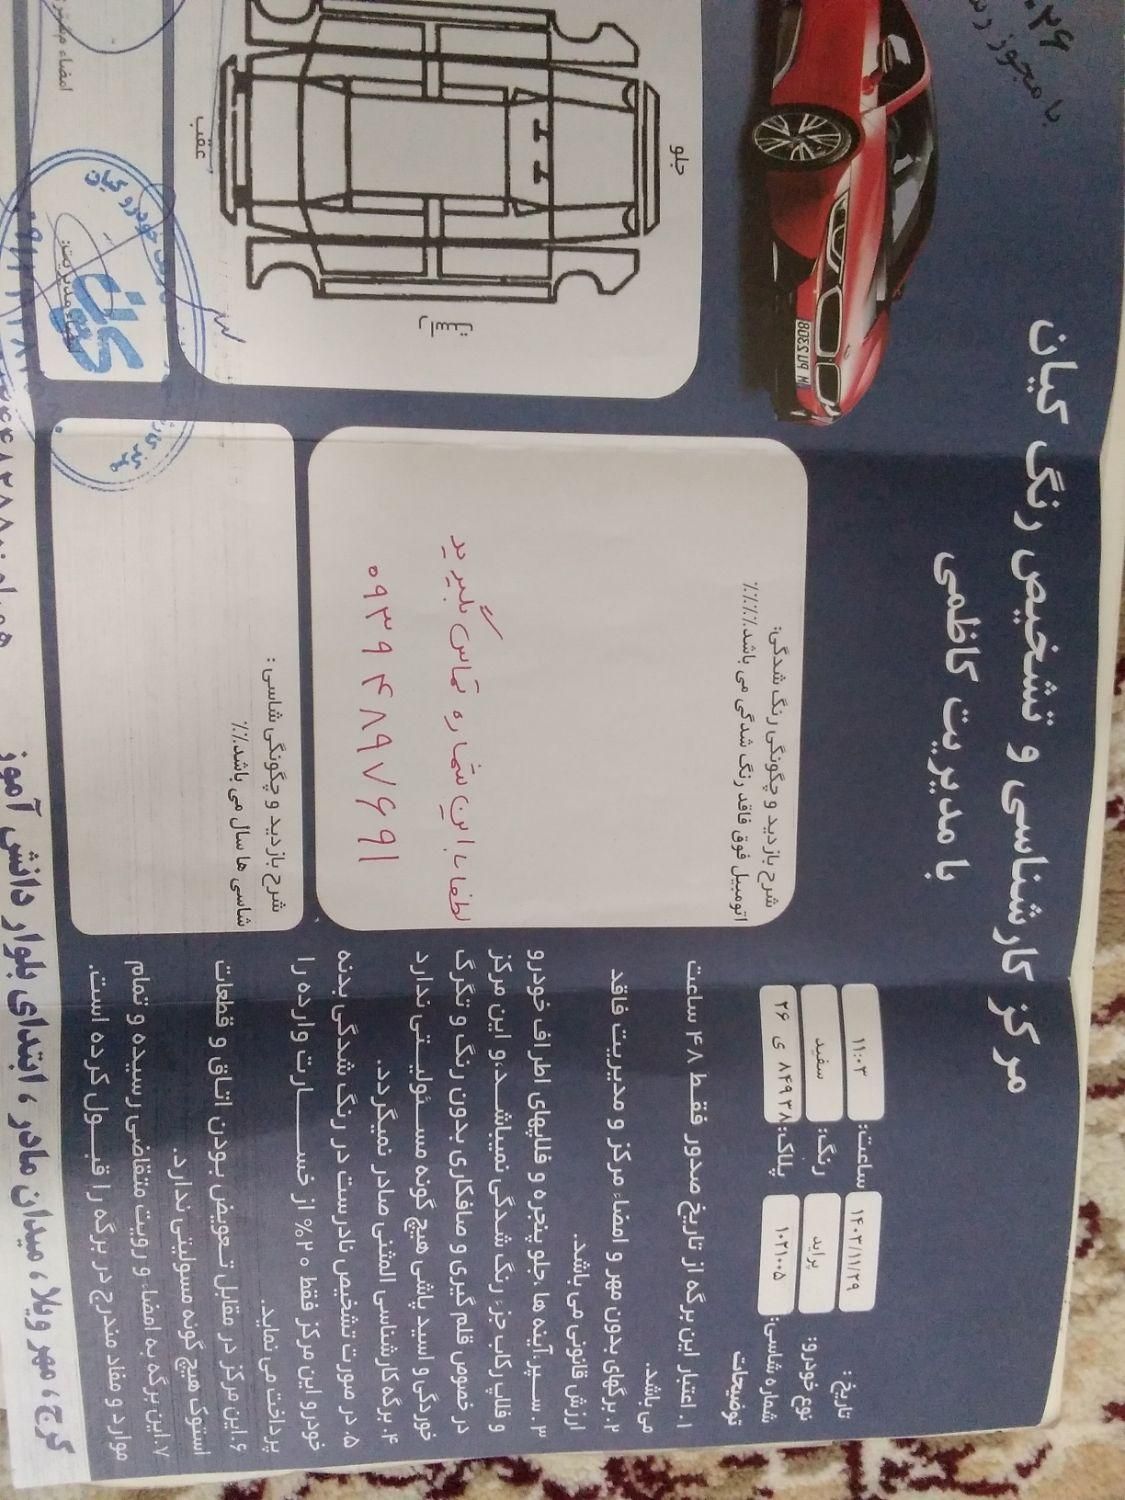 ۰۲۶
با مجوز رس
مرکز کارشناسی و تشخیص رنگ کیان
با مدیریت کاظمی
تاریخ: ۱۴۰۳/۱۱/۲۹ ساعت: ۱۱:۰۳
نوع خودرو: پراید رنگ: سفید
شماره شاسی: ۱۰۲۱۰۰۵ پلاک: ۸۴۹۳۸ ی ۲۶
توضیحات
۱. اعتبار این برگه از تاریخ صدور فقط ۴۸ ساعت
می باشد.
۲. برگهای بدون مهر و امضاء مرکز و مدیریت فاقد
ارزش قانونی می باشد.
۳. سپر، آینه ها، جلو پنجره و قلاپهای اطراف خودرو
و قلاپ رکاب جزء رنگ شدگی نمیباشد، و این مرکز
در خصوص قلم گیری و صافکاری بدون رنگ و تگرگ
خوردگی و اسید پاشی هیچ گونه مسئولیتی ندارد
۴. برگه کارشناسی المثنی صادر نمیگردد.
۵. در صورت تشخیص نادرست در رنگ شدگی بدنه
خودرو این مرکز فقط ۲۰% از خسارت وارده را
پرداخت می نماید.
۶. این مرکز در مقابل تعویض بودن اتاق و قطعات
استوک هیچ گونه مسولیتی ندارد.
۷. این برگه به امضاء و رویت متقاضی رسیده و تمام
موارد و مفاد مندرج در برگه را قبول کرده است.
شرح بازدید و چگونگی رنگ شدگی:
اتومبیل فوق فاقد رنگ شدگی می باشد.٪٪٪٪
لطفا با این شماره تماس بگیرید
۰۹۳۹۴۸۹۷۶۹۱
شرح بازدید و چگونگی شاسی :
شاسی ها سال می باشد.٪٪
جلو
راست
عقب
امضاء
کیان
کرج، مهر ویلا، میدان مادر، ابتدای بلوار دانش آموز